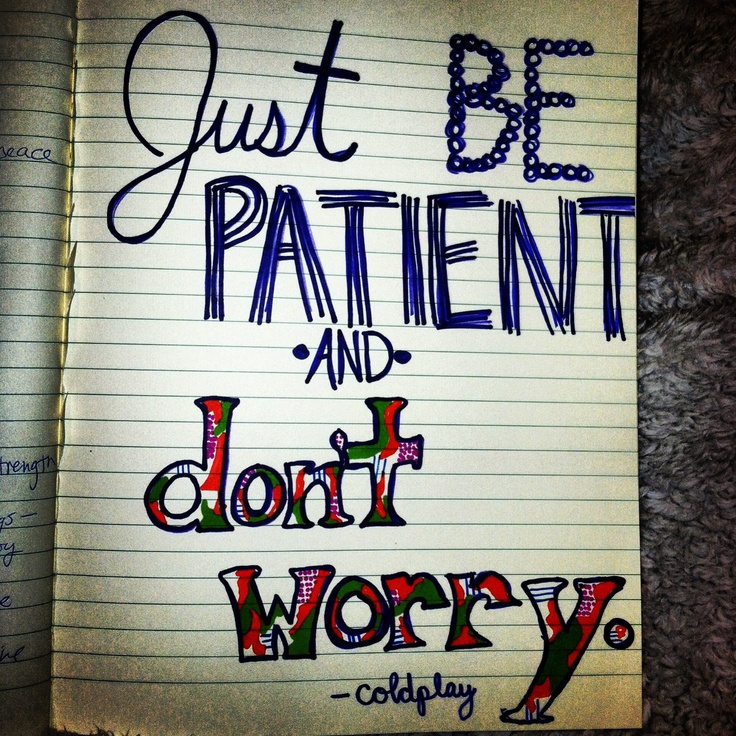 Just BE
PATIENT
•AND•
don't
worry.
- coldplay
peace
trength